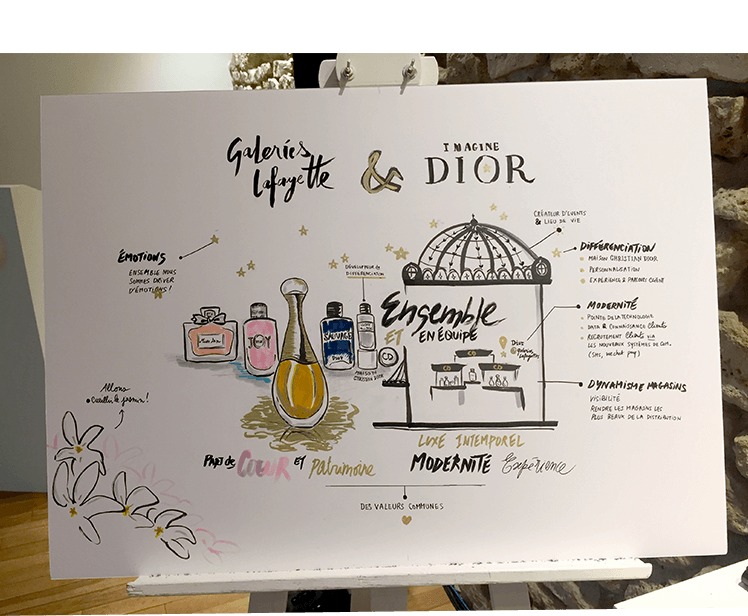 Galeries
Lafayette
&
IMAGINE
DIOR
CRÉATEUR D'EVENTS
& LIEU DE VIE
ÉMOTIONS
ENSEMBLE NOUS
SOMMES DRIVER
D'ÉMOTIONS !
DÉVELOPPEUR de
DIFFÉRENCIATION
DIFFÉRENCIATION
MAISON CHRISTIAN DIOR
PERSONNALISATION
EXPÉRIENCE & PARCOURS CLIENT
Ensemble
ET EN ÉQUIPE
MODERNITÉ
POINTE DE LA TECHNOLOGIE
DATA & CONNAISSANCE Clients
RECRUTEMENT Clients via
LES NOUVEAUX SYSTÈMES DE COM.
(SMS, wechat pay)
Miss Dior
JOY
SAUVAGE
DIOR
CD
MAISON
CHRISTIAN DIOR
Dior
@galeries
lafayette
CD
CD
CD
DYNAMISME MAGASINS
VISIBILITÉ
RENDRE LES MAGASINS LES
PLUS BEAUX DE LA DISTRIBUTION
Allons
Cueillir le jasmin !
LUXE INTEMPOREL
PART de COEUR ET Patrimoine
MODERNITÉ Expérience
DES VALEURS COMMUNES